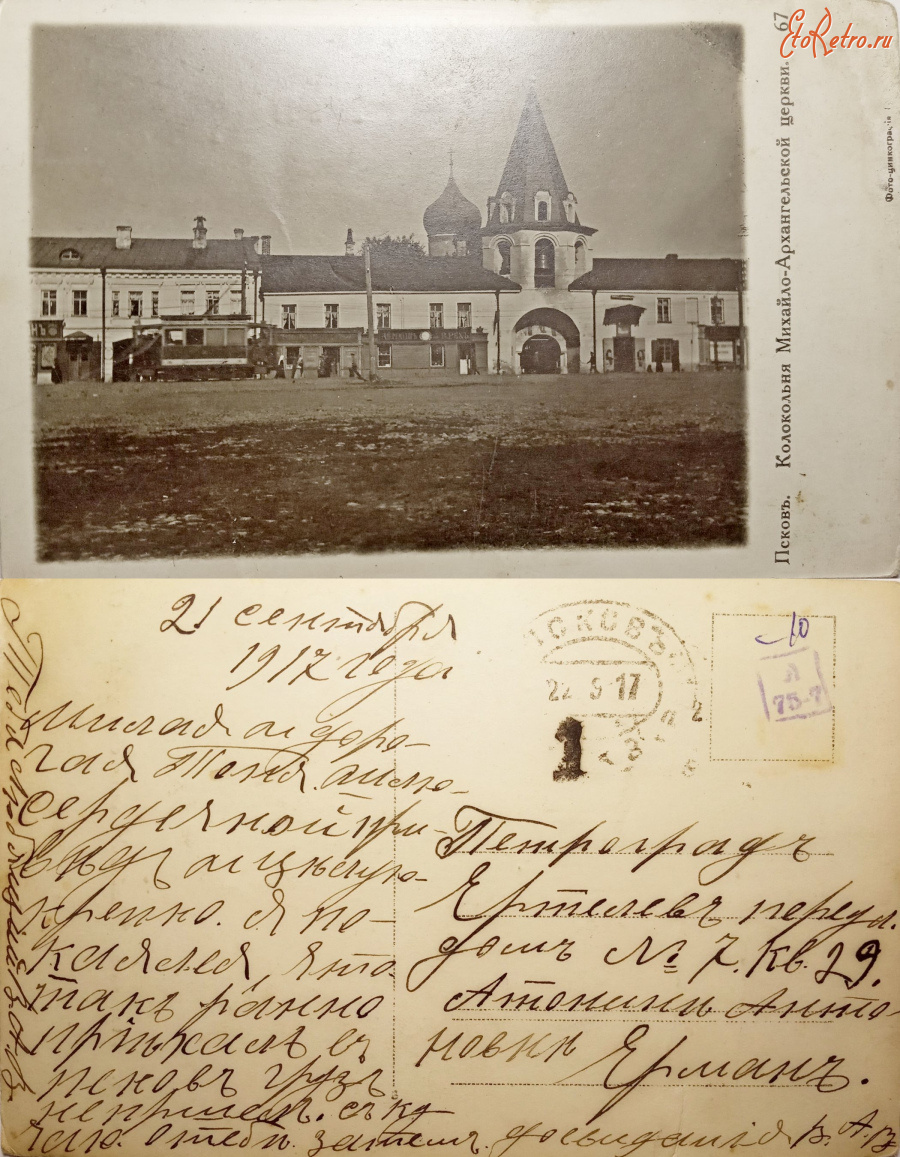 EtoRetro.ru
Псковъ. Колокольня Михайло-Архангельской церкви. 67
Фото-цинкографія
21 сентября
1917 года
милая и доро-
гая Тоня. шлю
сердечной при-
вкрепко. я по-
каялся, что
такъ ранно
пріѣхалъ въ
псковъ грузъ
непришелъ. ску-
чаю. затемъ досвидания В. А. В
ПСКОВЪ
22 9 17
1
10
Л
75-7
Петроградъ
Ертелевъ переул.
домъ № 7. Кв. 29.
Атонини Анто-
новни
Ерманъ.